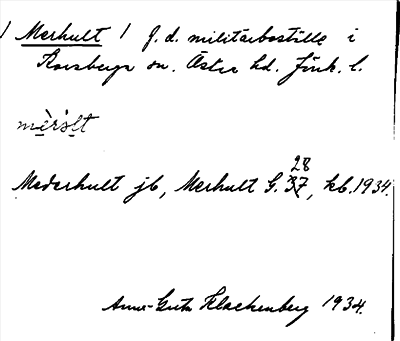 Merhult / f.d. militärboställe i
Korsberga sn. Östra hd. Jönk. l.
mèrɔ́lt
28
Mederhult jb, Merhult G. 37, kb. 1934.
Anna-Greta Klackenberg 1934.